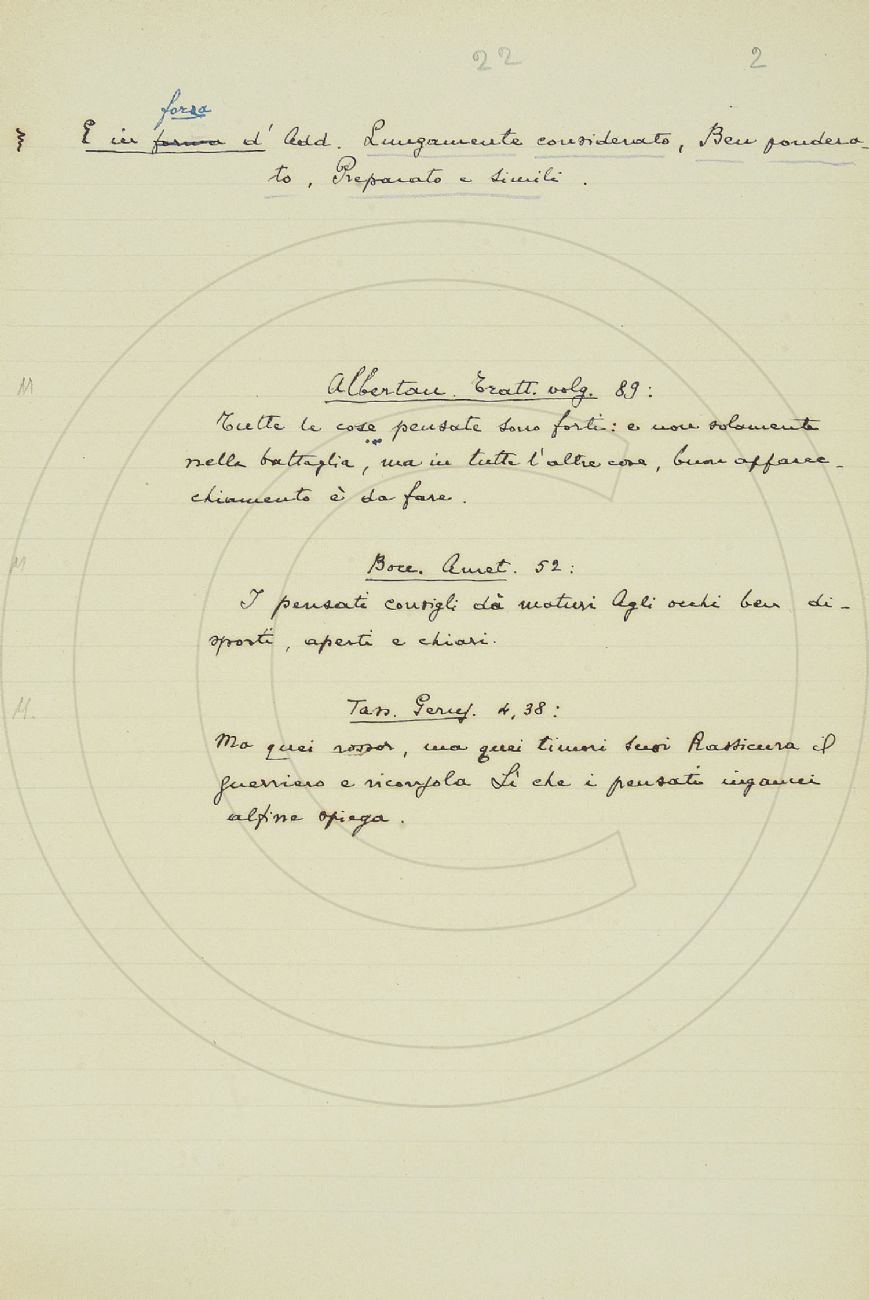 22 2
forza
§ E in forma d' Add. Lungamente considerato, Ben pondera-
to, Preparato e simili.
M Albertan. Tratt. volg. 89:
Tutte le cose pensate sono forti: e non solamente
nella battaglia, ma in tutte l'altre cose, buon apparec-
chiamento è da fare.
M Bocc. Amet. 52:
I pensati consigli dà maturi Agli occhi ben di-
sposti, aperti e chiari.
M. Tass. Geru. 4,38:
Ma quei rossor, ma quei timori suoi Rassicura il
guerriero e riconsola Sì che i pensati inganni
alfine spiega.